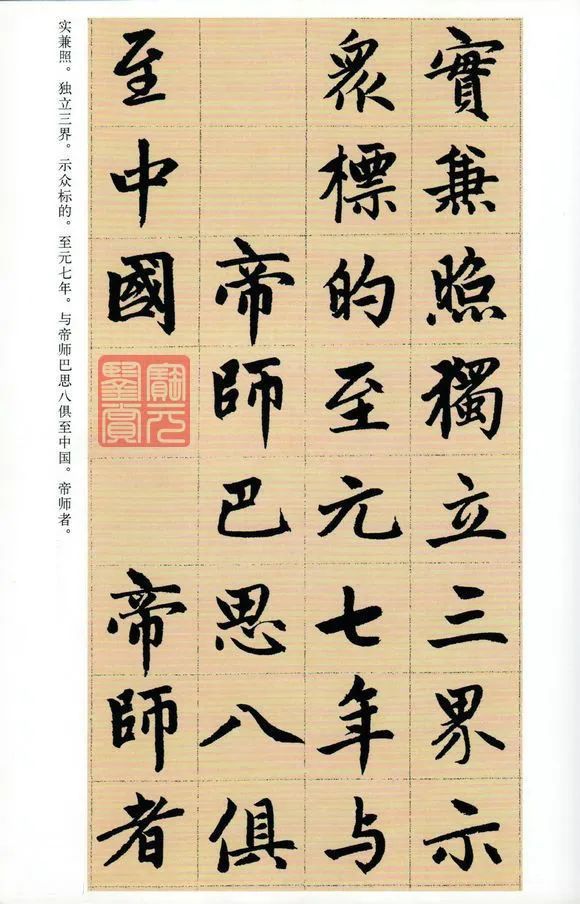 實兼照獨立三界示
衆標的至元七年与
帝師巴思八俱
至中國
帝師者
寶元
鑒賞
实兼照。独立三界。示众标的。至元七年。与帝师巴思八俱至中国。帝师者。